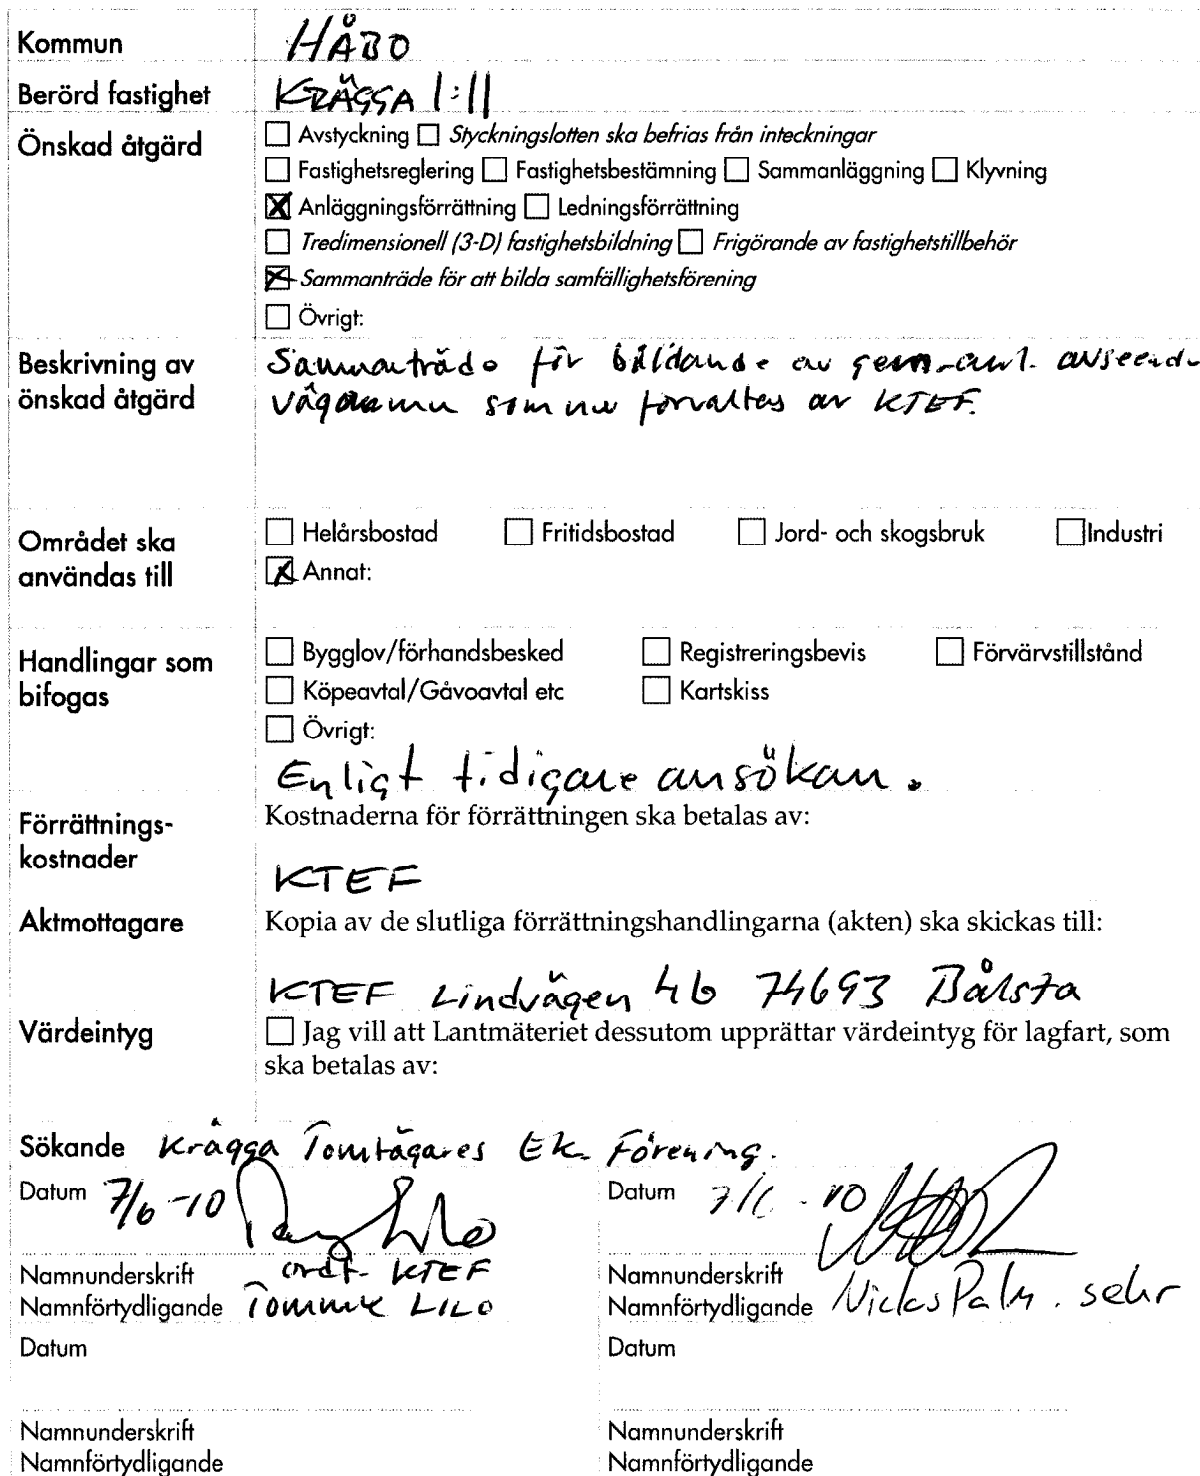 Kommun HÅBO
Berörd fastighet KRÄGGA 1:11
Önskad åtgärd ☐ Avstyckning ☐ Styckningslotten ska befrias från inteckningar
☐ Fastighetsreglering ☐ Fastighetsbestämning ☐ Sammanläggning ☐ Klyvning
☒ Anläggningsförrättning ☐ Ledningsförrättning
☐ Tredimensionell (3-D) fastighetsbildning ☐ Frigörande av fastighetstillbehör
☒ Sammanträde för att bilda samfällighetsförening
☐ Övrigt:
Beskrivning av Sammanträde för bildande av gem.anl. avseende
önskad åtgärd som nu förvaltas av KTEF.
Området ska ☐ Helårsbostad ☐ Fritidsbostad ☐ Jord- och skogsbruk ☐ Industri
användas till ☒ Annat:
Handlingar som ☐ Bygglov/förhandsbesked ☐ Registreringsbevis ☐ Förvärvstillstånd
bifogas ☐ Köpeavtal/Gåvoavtal etc ☐ Kartskiss
☐ Övrigt:
Enligt tidigare ansökan.
Förrättnings- Kostnaderna för förrättningen ska betalas av:
kostnader
KTEF
Aktmottagare Kopia av de slutliga förrättningshandlingarna (akten) ska skickas till:
KTEF Lindvägen 46 74693 Bålsta
Värdeintyg ☐ Jag vill att Lantmäteriet dessutom upprättar värdeintyg för lagfart, som
ska betalas av:
Sökande Krägga Tomtägares Ek. Förening.
Datum 7/6 -10 Datum 7/6 -10
Namnunderskrift ordf. KTEF Namnunderskrift
Namnförtydligande Tommie LILO Namnförtydligande Niclas Palm. sekr
Datum Datum
Namnunderskrift Namnunderskrift
Namnförtydligande Namnförtydligande